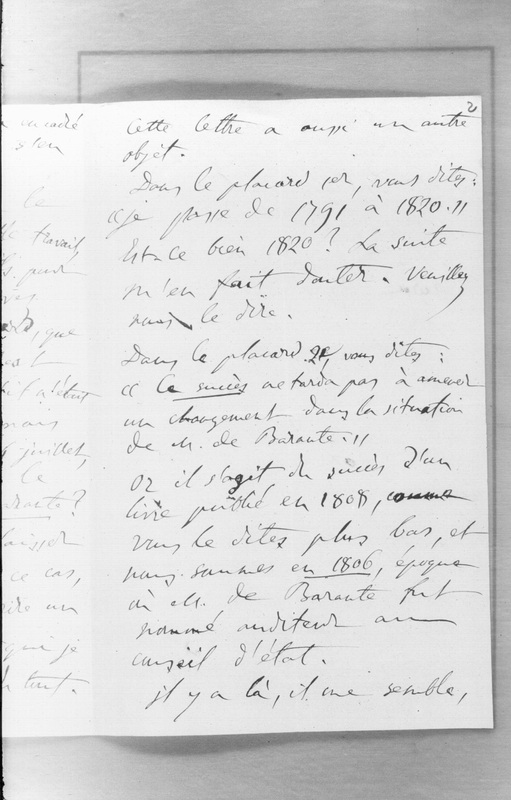 2
Cette lettre a aussi un autre
objet.
Dans le placard 1er, vous dites :
« je passe de 1791 à 1820. »
Est-ce bien 1820 ? La suite
m'en fait douter. Veuillez
nous le dire.
Dans le placard 2e, vous dites :
« le succès ne tarda pas à amener
un changement dans la situation
de M. de Barante. »
Or il s'agit du succès d'un
livre publié en 1808, comme
vous le dites plus bas, et
nous sommes en 1806, époque
où M. de Barante fut
nommé auditeur au
conseil d'état.
Il y a là, il me semble,
le
travail,
que
mais
juillet,
le
arante ?
laisser
ce cas,
un
qui je
tout.